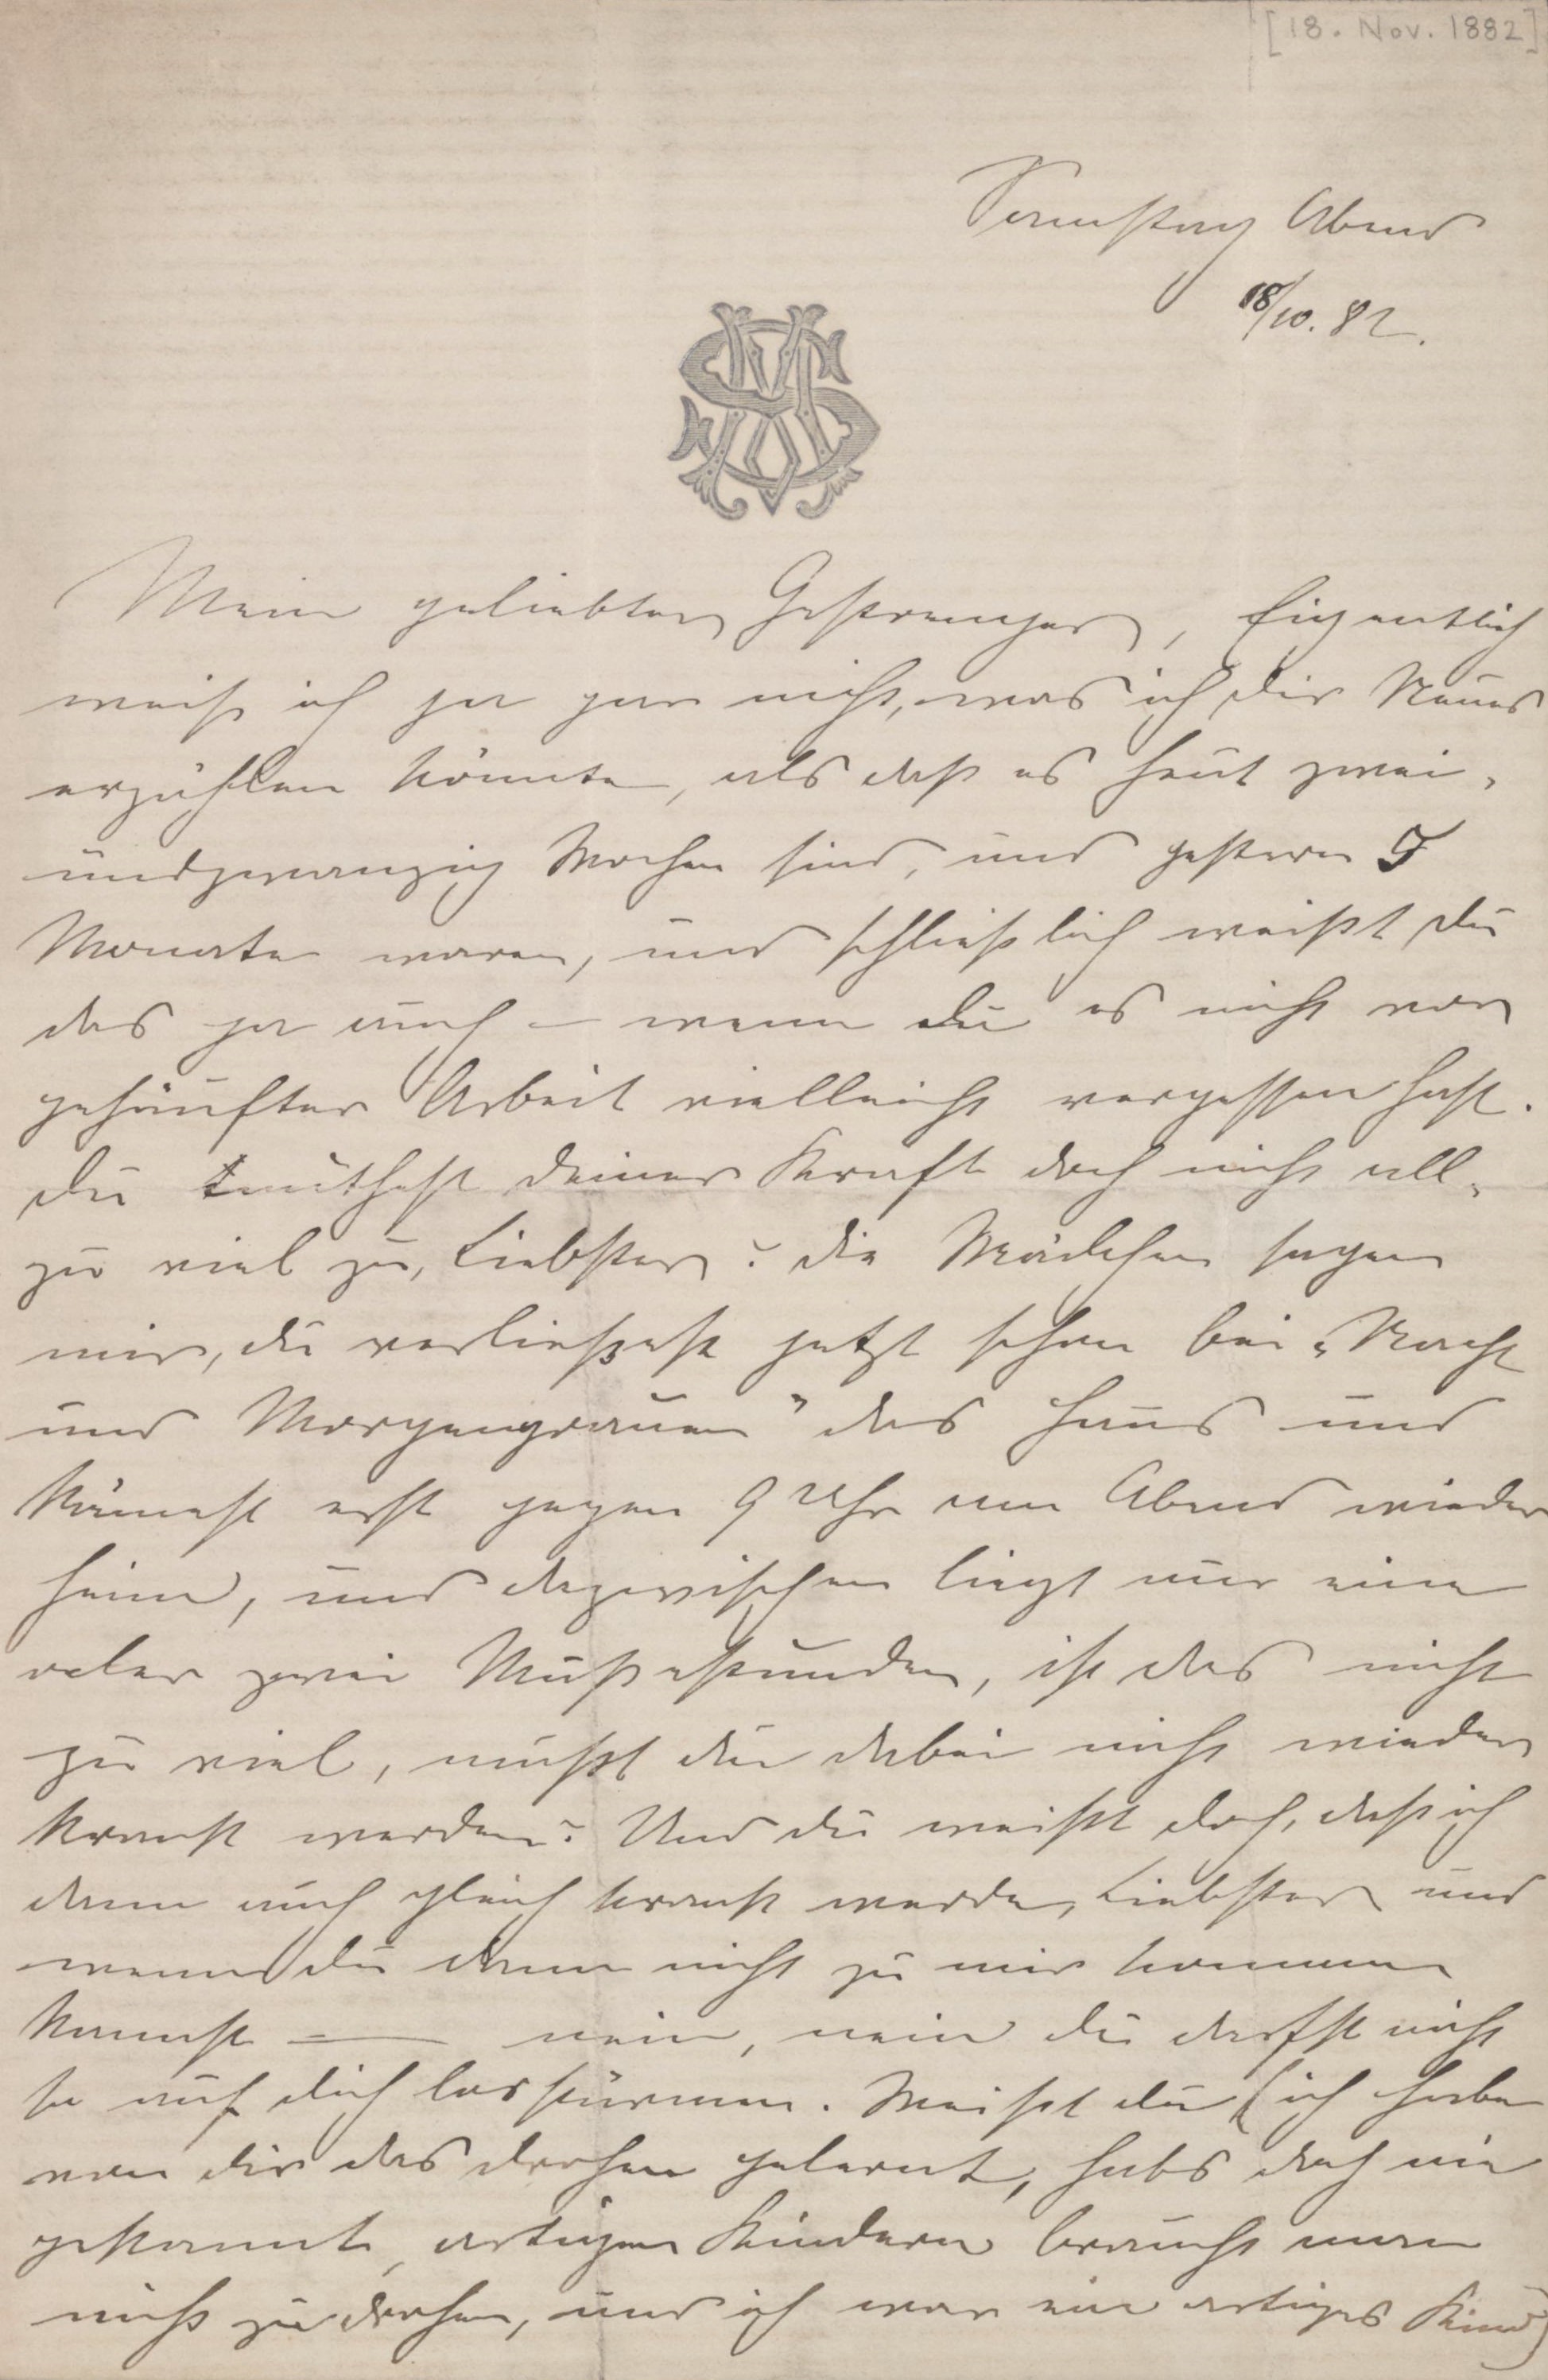 [18. Nov. 1882]
Samstag Abend
18/10. 82.
Mein geliebter Gestrenger, Eigentlich
weiß ich ja gar nicht, was ich dir Neues
erzählen könnte, als daß es heut zwei-
undzwanzig Wochen sind, und gestern 5
Monate waren, und schließlich weißt du
das ja auch – wenn du es nicht vor
gehäufter Arbeit vielleicht vergessen hast.
Du muthest deiner Kraft doch nicht all-
zu viel zu, Liebster? Die Mädchen sagen
mir, du verließest jetzt schon bei „Nacht
und Morgengrauen" das Haus und
kämest erst gegen 9 Uhr am Abend wieder
heim, und dazwischen liegt nur eine
oder zwei Mußestunden, ist das nicht
zu viel, mußt du dabei nicht wieder
krank werden? Und du weißt doch, daß ich
dann auch gleich krank werde, Liebster und
wenn du dann nicht zu mir kommen
kannst — nein, nein du darfst nicht
so auf dich losstürmen. Weißt du (ich habe
von dir das drohen gelernt, habs doch nie
gekannt, artigen Kindern braucht man
nicht zu drohen, und ich war ein artiges Kind)